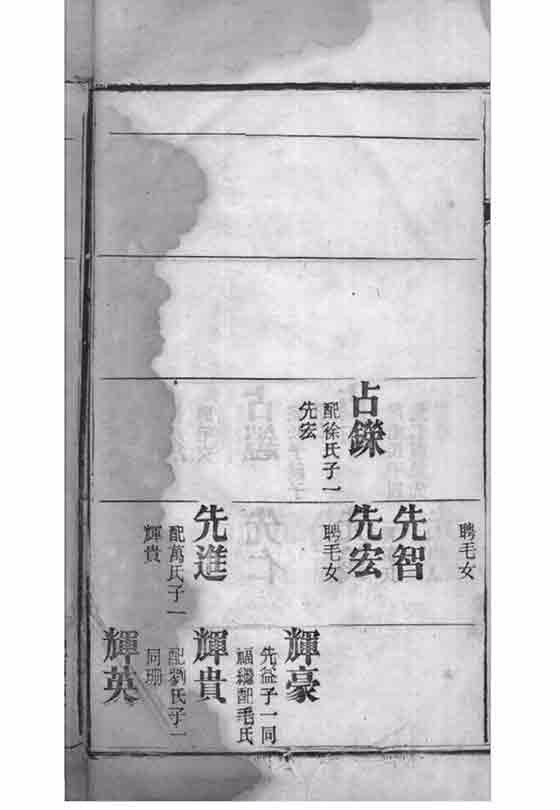 占鑅
配徐氏子一
先宏
聘毛女
先智
先宏
聘毛女
先進
配萬氏子一
輝貴
輝豪
先益子一同
福繼配毛氏
輝貴
配劉氏子一
同珊
輝英